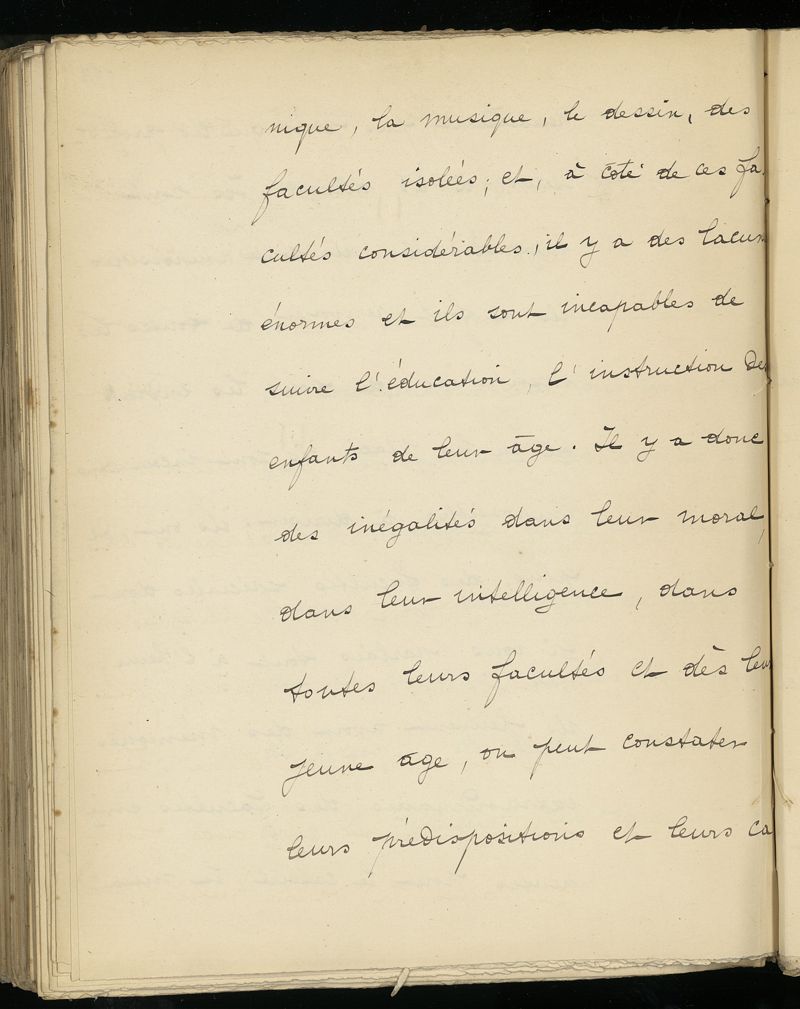 nique, la musique, le dessin, des
facultés isolées; et, à coté de ces fa
cultés considérables, il y a des lacun
énormes et ils sont incapables de
suivre l'éducation, l'instruction des
enfants de leur âge. Il y a donc
des inégalités dans leur moral,
dans leur intelligence, dans
toutes leurs facultés et dès leur
jeune âge, on peut constater
leurs prédispositions et leurs ca